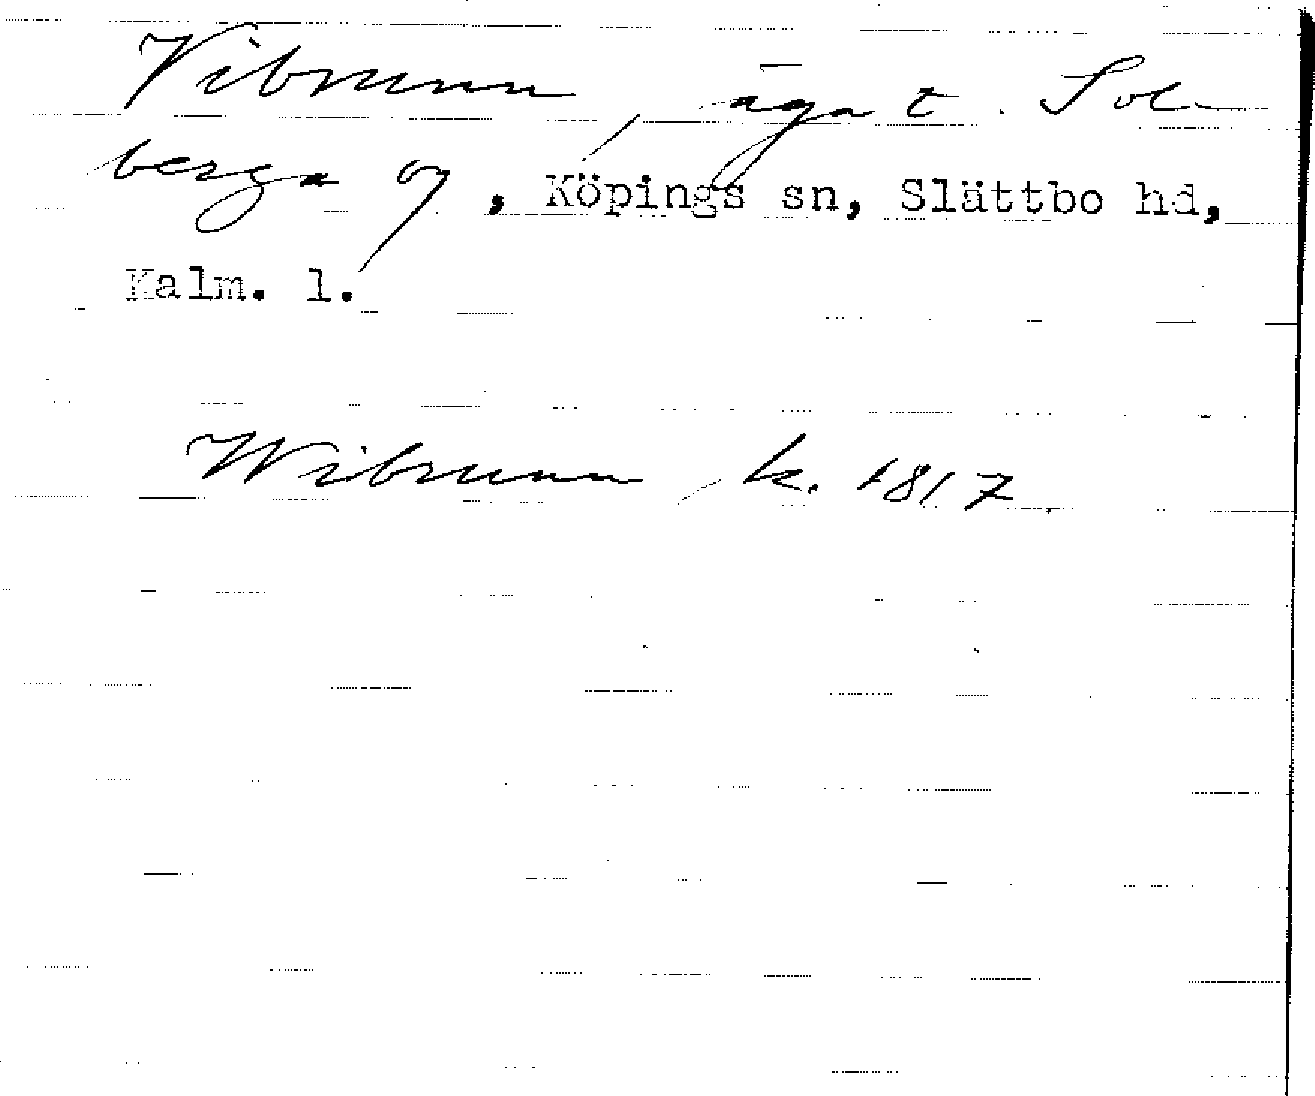 Vibrunn, äga t. Sol-
berga by, Köpings sn, Slättbo hd,
Kalm. l.
Wibrunn, k. 1817